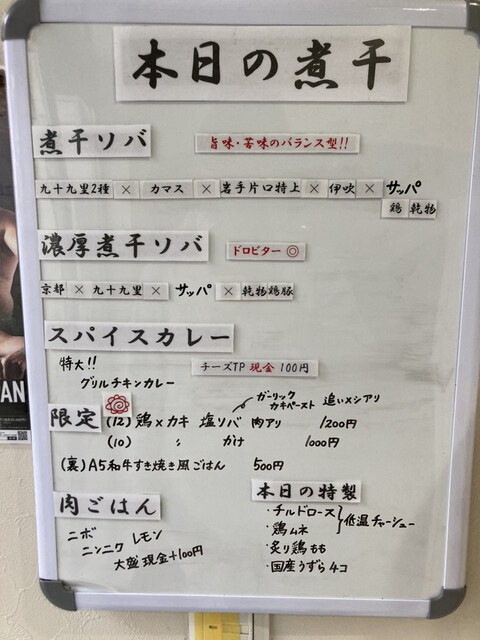 本日の煮干
煮干ソバ
旨味・苦味のバランス型!!
九十九里2種 × カマス × 岩手片口特上 × 伊吹 × サッパ
鶏 乾物
濃厚煮干ソバ
ドロビター ◎
京都 × 九十九里 × サッパ × 乾物鶏豚
スパイスカレー
特大!!
チーズTP 現金 100円
グリルチキンカレー
ガーリック
カキペースト 追いメシアリ
限定 (12) 鶏×カキ 塩ソバ 肉アリ 1200円
(10) 〃 かけ 1000円
(裏) A5和牛すき焼き風ごはん 500円
肉ごはん
ニボ
ニンニク レモン
大盛 現金+100円
本日の特製
・チルドロース
・鶏ムネ } 低温チャーシュー
・炙り鶏もも
・国産うずら4コ
AN